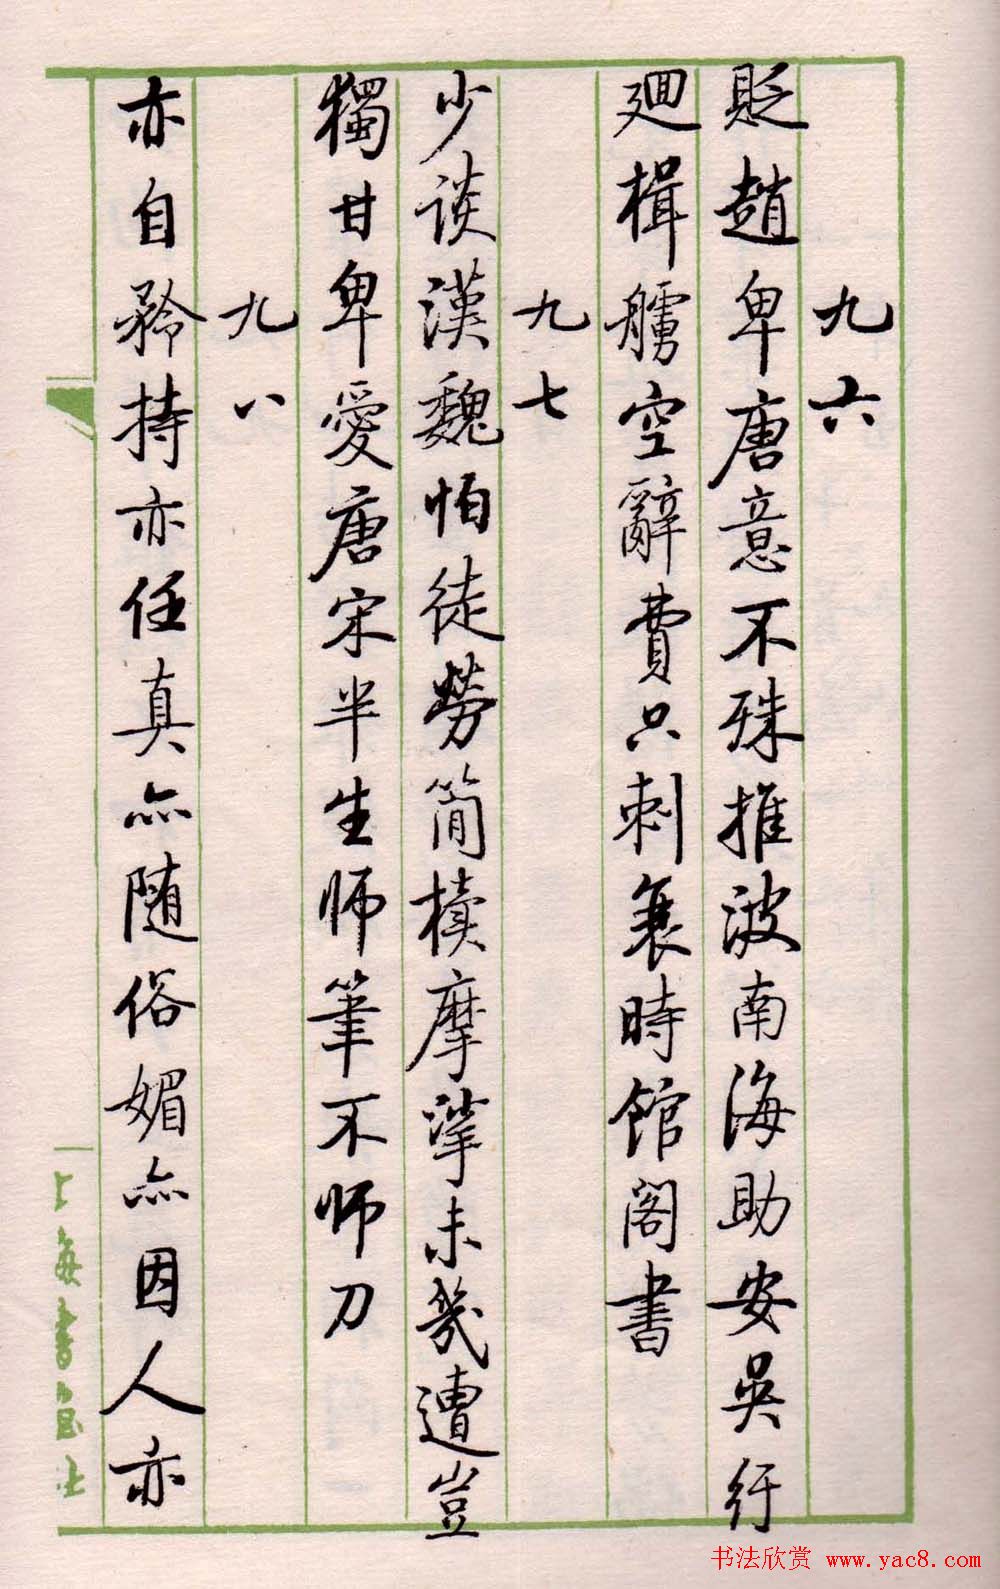 九六
貶趙卑唐意不殊推波南海助安吳行
廻楫艣空辭費只刺衰時館閣書
九七
少談漢魏怕徒勞簡櫝摩挲未幾遭豈
獨甘卑愛唐宋半生師筆不師刀
九八
亦自矜持亦任真亦随俗媚亦因人亦
上海書画社
书法欣赏 www.yac8.com